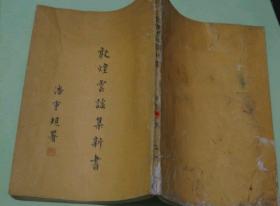 敦煌雲謠集新書
潘重規署